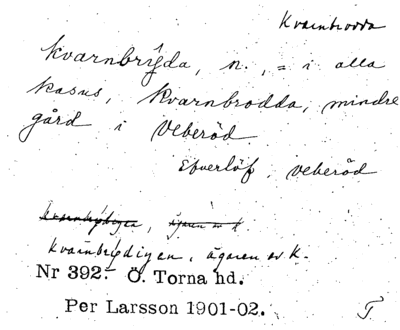 Kvarnbrodda
kvarnbryda, n., = i alla
kasus, Kvarnbrodda, mindre
gård i Veberöd.
Efverlöf, Veberöd
kvarnbrydigen, ägaren av K
kvarnbrydigen, ägaren av K.
Nr 392. Ö. Torna hd.
Per Larsson 1901-02.